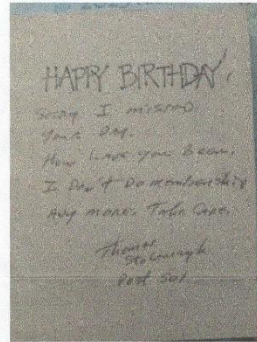 HAPPY BIRTHDAY,
Sorry I missed
your Day.
How have you Been,
I Don't Do membership
Any more. Take Care.
Thomas
Post 501